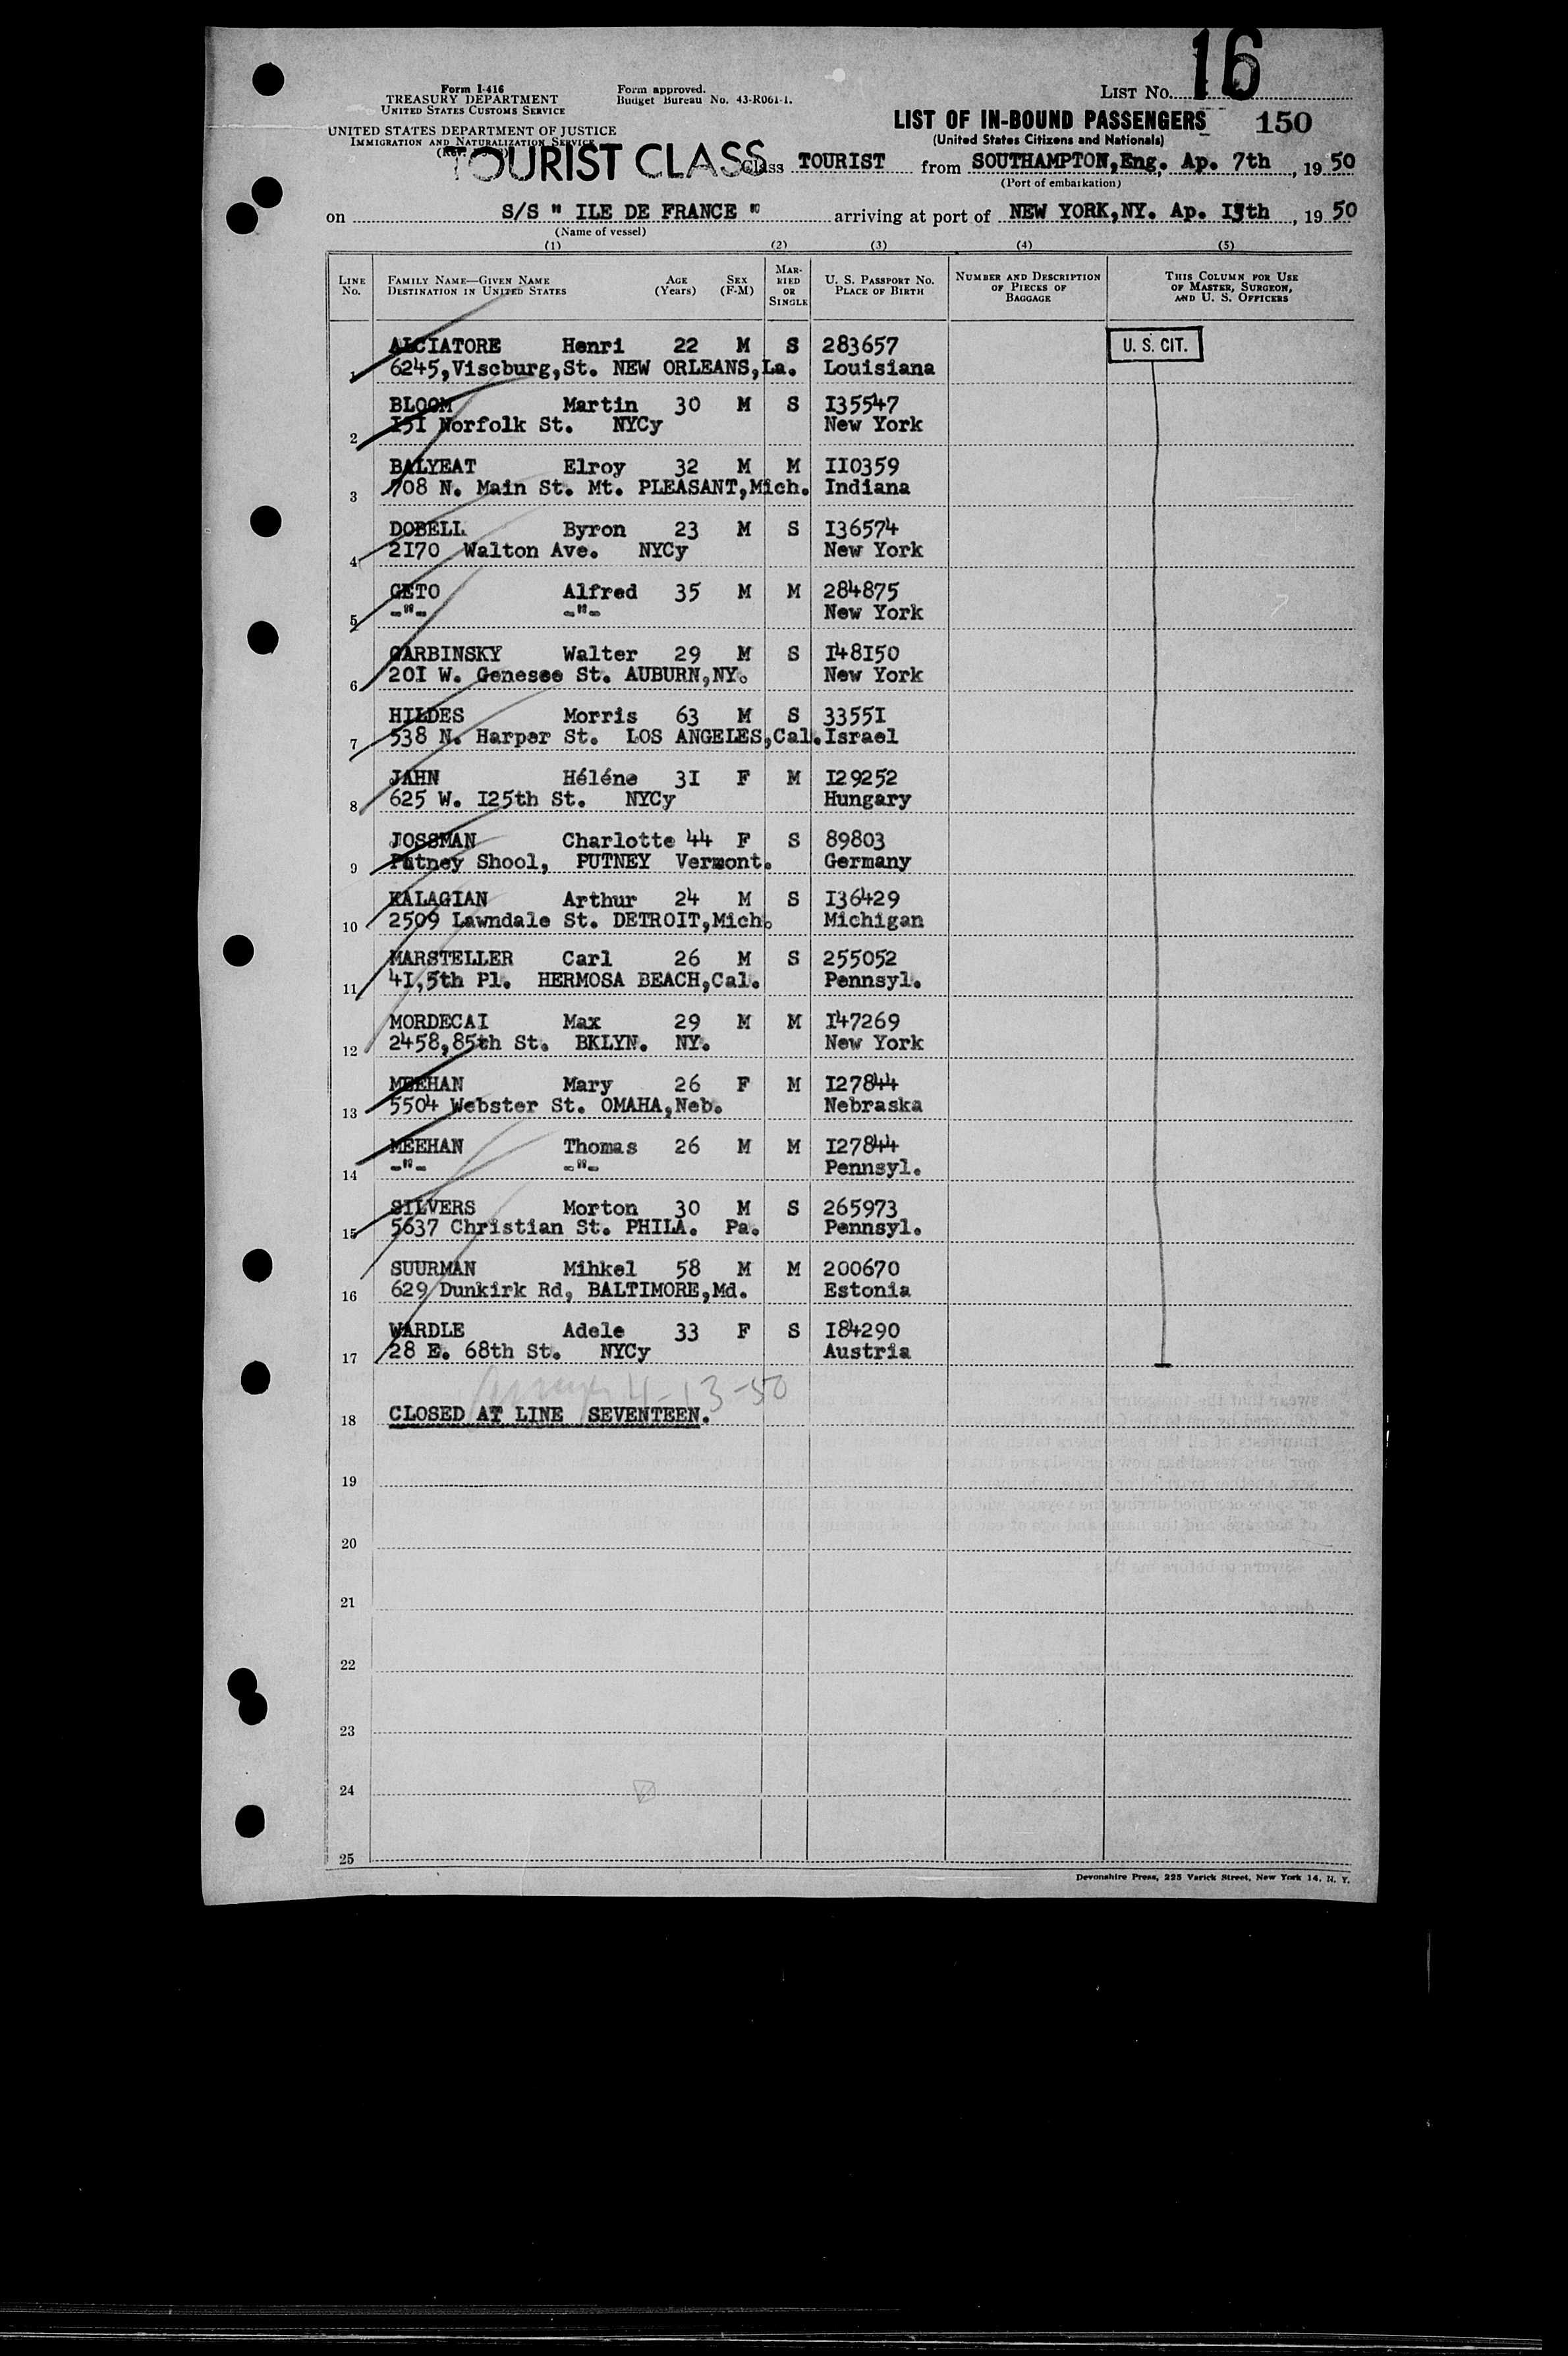 16
Form I-416
TREASURY DEPARTMENT
UNITED STATES CUSTOMS SERVICE
Form approved.
Budget Bureau No. 43-R061-1.
LIST No.
UNITED STATES DEPARTMENT OF JUSTICE
IMMIGRATION AND NATURALIZATION SERVICE
LIST OF IN-BOUND PASSENGERS 150
(United States Citizens and Nationals)
TOURIST CLASS
Class TOURIST from SOUTHAMPTON,Eng. Ap. 7th, 1950
(Port of embarkation)
on S/S " ILE DE FRANCE " arriving at port of NEW YORK,NY. Ap. I3th, 1950
(Name of vessel)
(1) (2) (3) (4) (5)
LINE No. FAMILY NAME—GIVEN NAME DESTINATION IN UNITED STATES AGE (Years) SEX (F-M) MARRIED OR SINGLE U. S. PASSPORT No. PLACE OF BIRTH NUMBER AND DESCRIPTION OF PIECES OF BAGGAGE THIS COLUMN FOR USE OF MASTER, SURGEON, AND U. S. OFFICERS
ALCIATORE Henri 22 M S 283657 U. S. CIT.
1 6245,Viscburg,St. NEW ORLEANS,La. Louisiana
BLOOM Martin 30 M S I35547
2 I5I Norfolk St. NYCy New York
BALYEAT Elroy 32 M M II0359
3 708 N. Main St. Mt. PLEASANT,Mich. Indiana
DOBELL Byron 23 M S I36574
4 2I70 Walton Ave. NYCy New York
GETO Alfred 35 M M 284875
5 -"- -"- New York
GARBINSKY Walter 29 M S I48I50
6 20I W. Genesee St. AUBURN,NY. New York
HILDES Morris 63 M S 3355I
7 538 N. Harper St. LOS ANGELES,Cal. Israel
JAHN Héléne 3I F M I29252
8 625 W. I25th St. NYCy Hungary
JOSSMAN Charlotte 44 F S 89803
9 Putney Shool, PUTNEY Vermont. Germany
KALAGIAN Arthur 24 M S I36429
10 2509 Lawndale St. DETROIT,Mich. Michigan
MARSTELLER Carl 26 M S 255052
11 4I,5th Pl. HERMOSA BEACH,Cal. Pennsyl.
MORDECAI Max 29 M M I47269
12 2458,85th St. BKLYN. NY. New York
MEEHAN Mary 26 F M I27844
13 5504 Webster St. OMAHA,Neb. Nebraska
MEEHAN Thomas 26 M M I27844
14 -"- -"- Pennsyl.
SILVERS Morton 30 M S 265973
15 5637 Christian St. PHILA. Pa. Pennsyl.
SUURMAN Mihkel 58 M M 200670
16 629 Dunkirk Rd, BALTIMORE,Md. Estonia
WARDLE Adele 33 F S I84290
17 28 E. 68th St. NYCy Austria
4-13-50
18 CLOSED AT LINE SEVENTEEN.
19
20
21
22
23
24
25
Devonshire Press, 225 Varick Street, New York 14, N. Y.